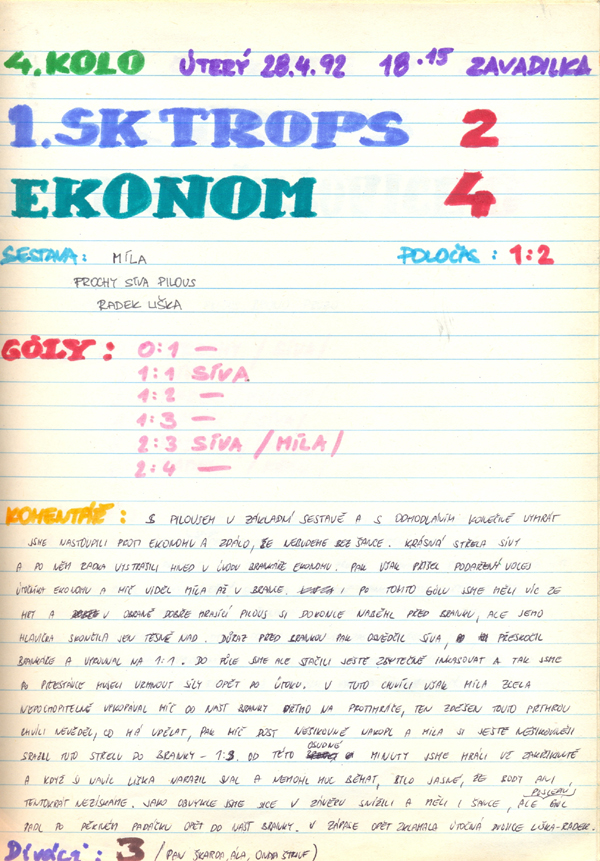 4. KOLO ÚTERÝ 28.4.92 18.15 ZAVADILKA
1.SK TROPS 2
EKONOM 4
SESTAVA: MÍLA POLOČAS: 1:2
PROCHY SÍVA PILOUS
RADEK LIŠKA
GÓLY: 0:1 —
1:1 SÍVA
1:2 —
1:3 —
2:3 SÍVA /MÍLA/
2:4 —
KOMENTÁŘ: S PILOUSEM V ZÁKLADNÍ SESTAVĚ A S ODHODLÁNÍM KONEČNĚ VYHRÁT
JSME NASTOUPILI PROTI EKONOMU A ZDÁLO, ŽE NEBUDEME BEZ ŠANCE. KRÁSNÁ STŘELA SÍVY
A PO NĚM RADKA VYSTRAŠILI HNED V ÚVODU BRANKÁŘE EKONOMU. PAK VŠAK PŘIŠEL PODAŘENÝ VOLEJ
ÚTOČNÍKA EKONOMU A MÍČ VIDĚL MÍLA AŽ V BRANCE. I PO TOMTO GÓLU JSME MĚLI VÍC ZE
HRY A V OBRANĚ DOBŘE HRAJÍCÍ PILOUS SI DOKONCE NABĚHL PŘED BRANKU, ALE JEHO
HLAVIČKA SKONČILA JEN TĚSNĚ NAD. DŮRAZ PŘED BRANKOU PAK OSVĚDČIL SÍVA, PŘESKOČIL
BRANKÁŘE A VYROVNAL NA 1:1. DO PŮLE JSME ALE STAČILI JEŠTĚ ZBYTEČNĚ INKASOVAT A TAK JSME
PO PŘESTÁVCE MUSELI VRHNOUT SÍLY OPĚT DO ÚTOKU. V TUTO CHVÍLI VŠAK MÍLA ZCELA
NEPOCHOPITELNĚ VYKOPÁVAL MÍČ OD NAŠÍ BRANKY PŘÍMO NA PROTIHRÁČE, TEN ZDĚŠEN TOUTO PŘIHROU
CHVÍLI NEVĚDĚL, CO MÁ UDĚLAT, PAK MÍČ DOST NEŠIKOVNĚ NAKOPL A MÍLA SI JEŠTĚ NEŠIKOVNĚJI
SRAZIL TUTO STŘELU DO BRANKY - 1:3. OD TÉTO OSUDNÉ MINUTY JSME HRÁLI UŽ ZAKŘIKNUTĚ
A KDYŽ SI NAVÍC LIŠKA NARAZIL SVAL A NEMOHL MOC BĚHAT, BYLO JASNÉ, ŽE BODY ANI
TENTOKRÁT NEZÍSKÁME. JAKO OBVYKLE JSME SICE V ZÁVĚRU SNÍŽILI A MĚLI I ŠANCE, ALE POSLEDNÍ GÓL
PADL PO PĚKNÉM PADÁČKU OPĚT DO NAŠÍ BRANKY. V ZÁPASE OPĚT ZKLAMALA ÚTOČNÁ DVOJICE LIŠKA-RADEK.
DIVÁCI: 3 /PAN ŠKARDA, ÁLA,